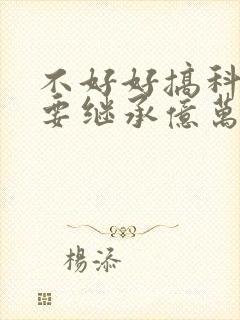 不好好搞科
要继承億萬
楊添